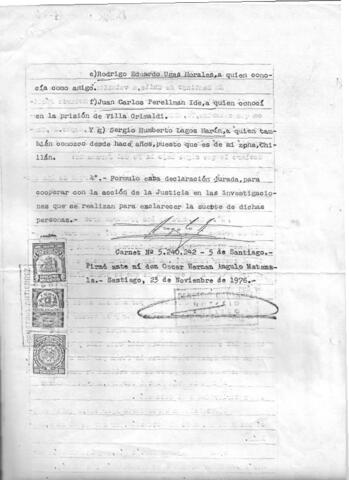 e)Rodrigo Eduardo Ugas Morales, a quien cono-
cía como amigo.
f)Juan Carlos Perellman Ide, a quien conocí
en la prisión de Villa Grimaldi.
Y g) Sergio Humberto Lagos Marín, a quien tam-
bién conozco desde hace años, puesto que es de mi zona, Chi-
llán.
4°.- Formulo esta declaración jurada, para
cooperar con la acción de la Justicia en las investigacione
que se realizan para esclarecer la suerte de dichas
personas.-
Carnet Nº 5.240.242 - 5 de Santiago.-
Firmó ante mí don Oscar Hernan Angulo Matama-
la.- Santiago, 23 de Noviembre de 1976.-